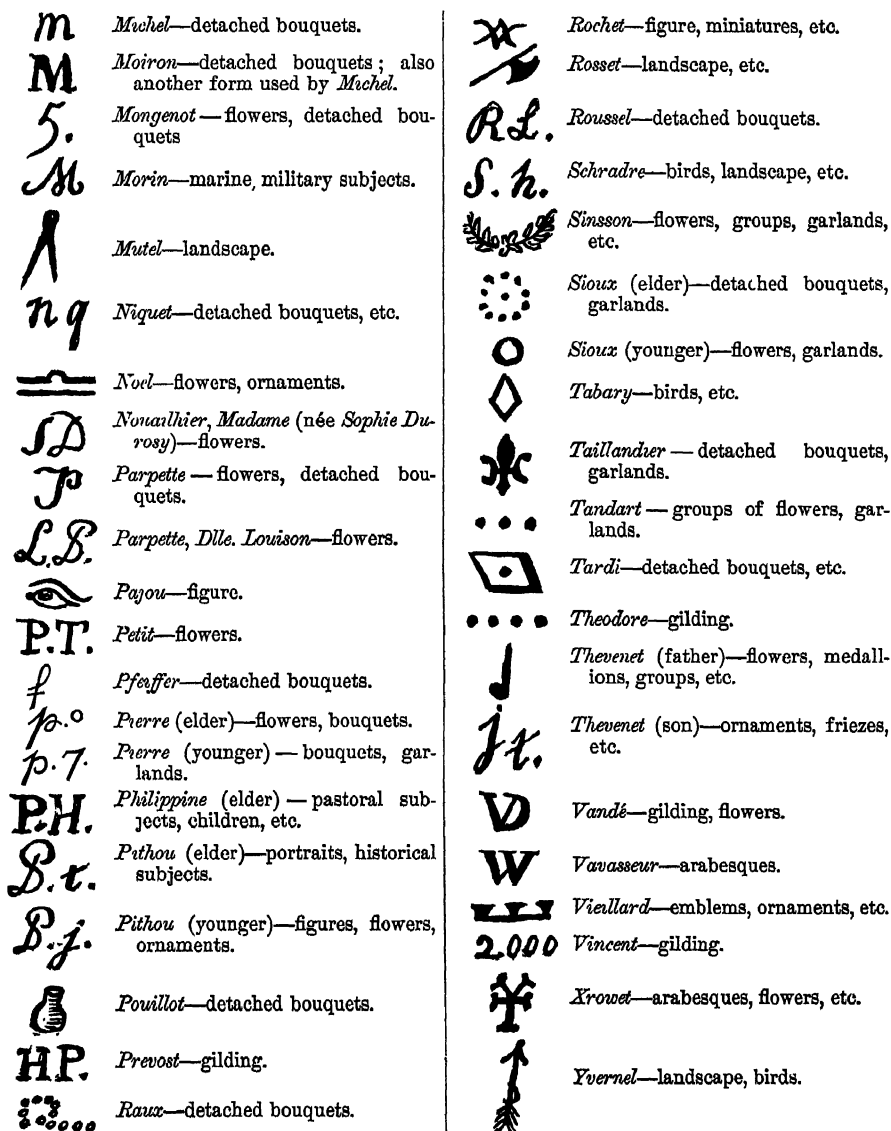 m Michel—detached bouquets.
M Moiron—detached bouquets; also
another form used by Michel.
5. Mongenot—flowers, detached bou-
quets
M Morin—marine, military subjects.
Mutel—landscape.
n q Niquet—detached bouquets, etc.
Noel—flowers, ornaments.
SD Nouailhier, Madame (née Sophie Du-
rosy)—flowers.
P Parpette—flowers, detached bou-
quets.
L.B. Parpette, Dlle. Louison—flowers.
Pajou—figure.
P.T. Petit—flowers.
f Pfeiffer—detached bouquets.
p.o Pierre (elder)—flowers, bouquets.
p.7. Pierre (younger)—bouquets, gar-
lands.
P.H. Philippine (elder)—pastoral sub-
jects, children, etc.
P.t. Pithou (elder)—portraits, historical
subjects.
P.j. Pithou (younger)—figures, flowers,
ornaments.
Pouillot—detached bouquets.
H.P. Prevost—gilding.
Raux—detached bouquets.
Rochet—figure, miniatures, etc.
Rosset—landscape, etc.
R L. Roussel—detached bouquets.
S.h. Schradre—birds, landscape, etc.
Sinsson—flowers, groups, garlands,
etc.
Sioux (elder)—detached bouquets,
garlands.
Sioux (younger)—flowers, garlands.
Tabary—birds, etc.
Taillandier—detached bouquets,
garlands.
Tandart—groups of flowers, gar-
lands.
Tardi—detached bouquets, etc.
Theodore—gilding.
Thevenet (father)—flowers, medall-
ions, groups, etc.
j t. Thevenet (son)—ornaments, friezes,
etc.
VD Vandé—gilding, flowers.
W Vavasseur—arabesques.
Vieillard—emblems, ornaments, etc.
2.000 Vincent—gilding.
Xrowet—arabesques, flowers, etc.
Yvernel—landscape, birds.